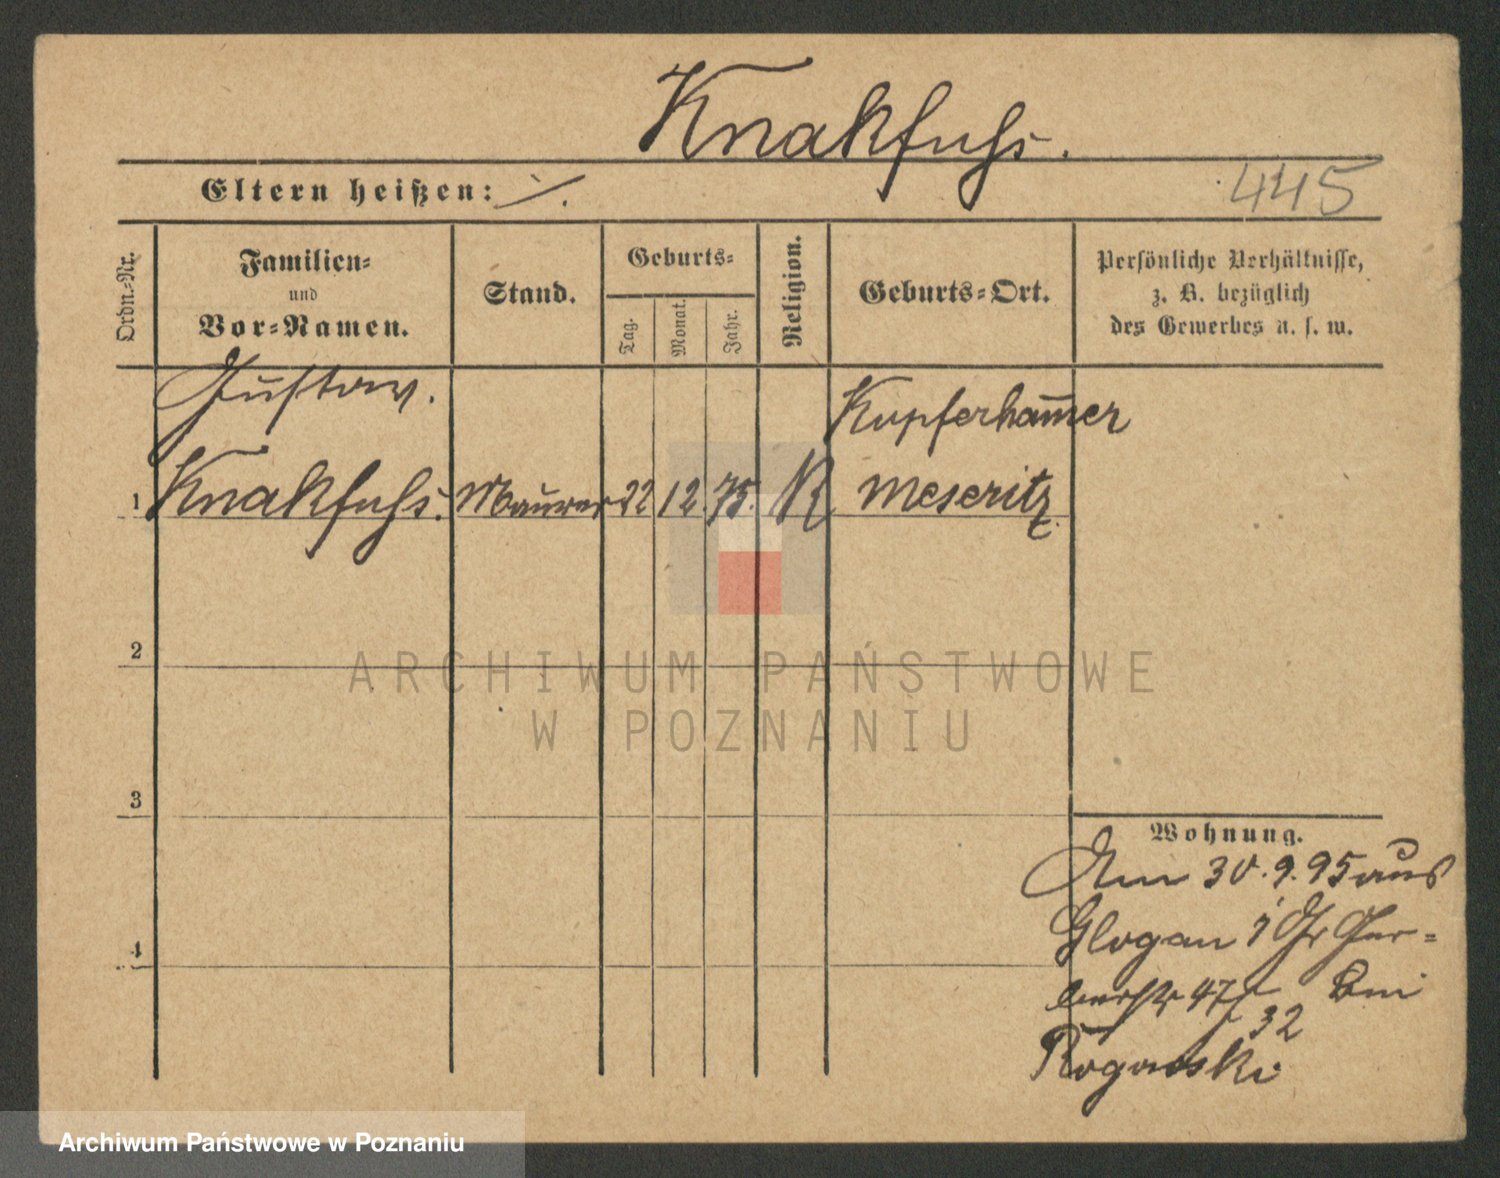 Knakfuss.
Eltern heißen: ⁒
445
Ordn.-Nr.
Familien-
und
Vor-Namen.
Stand.
Geburts-
Tag.
Monat.
Jahr.
Religion.
Geburts-Ort.
Persönliche Verhältnisse,
z. B. bezüglich
des Gewerbes u. s. w.
Gustav.
Kupferham̅er
1 Knakfuss. Maurer 22 12. 75. K Meseritz.
2
ARCHIWUM PAŃSTWOWE
W POZNANIU
3
Wohnung.
Am 30.9.95 aus
4
Glogau
47 bei
32
Rogowski
Archiwum Państwowe w Poznaniu